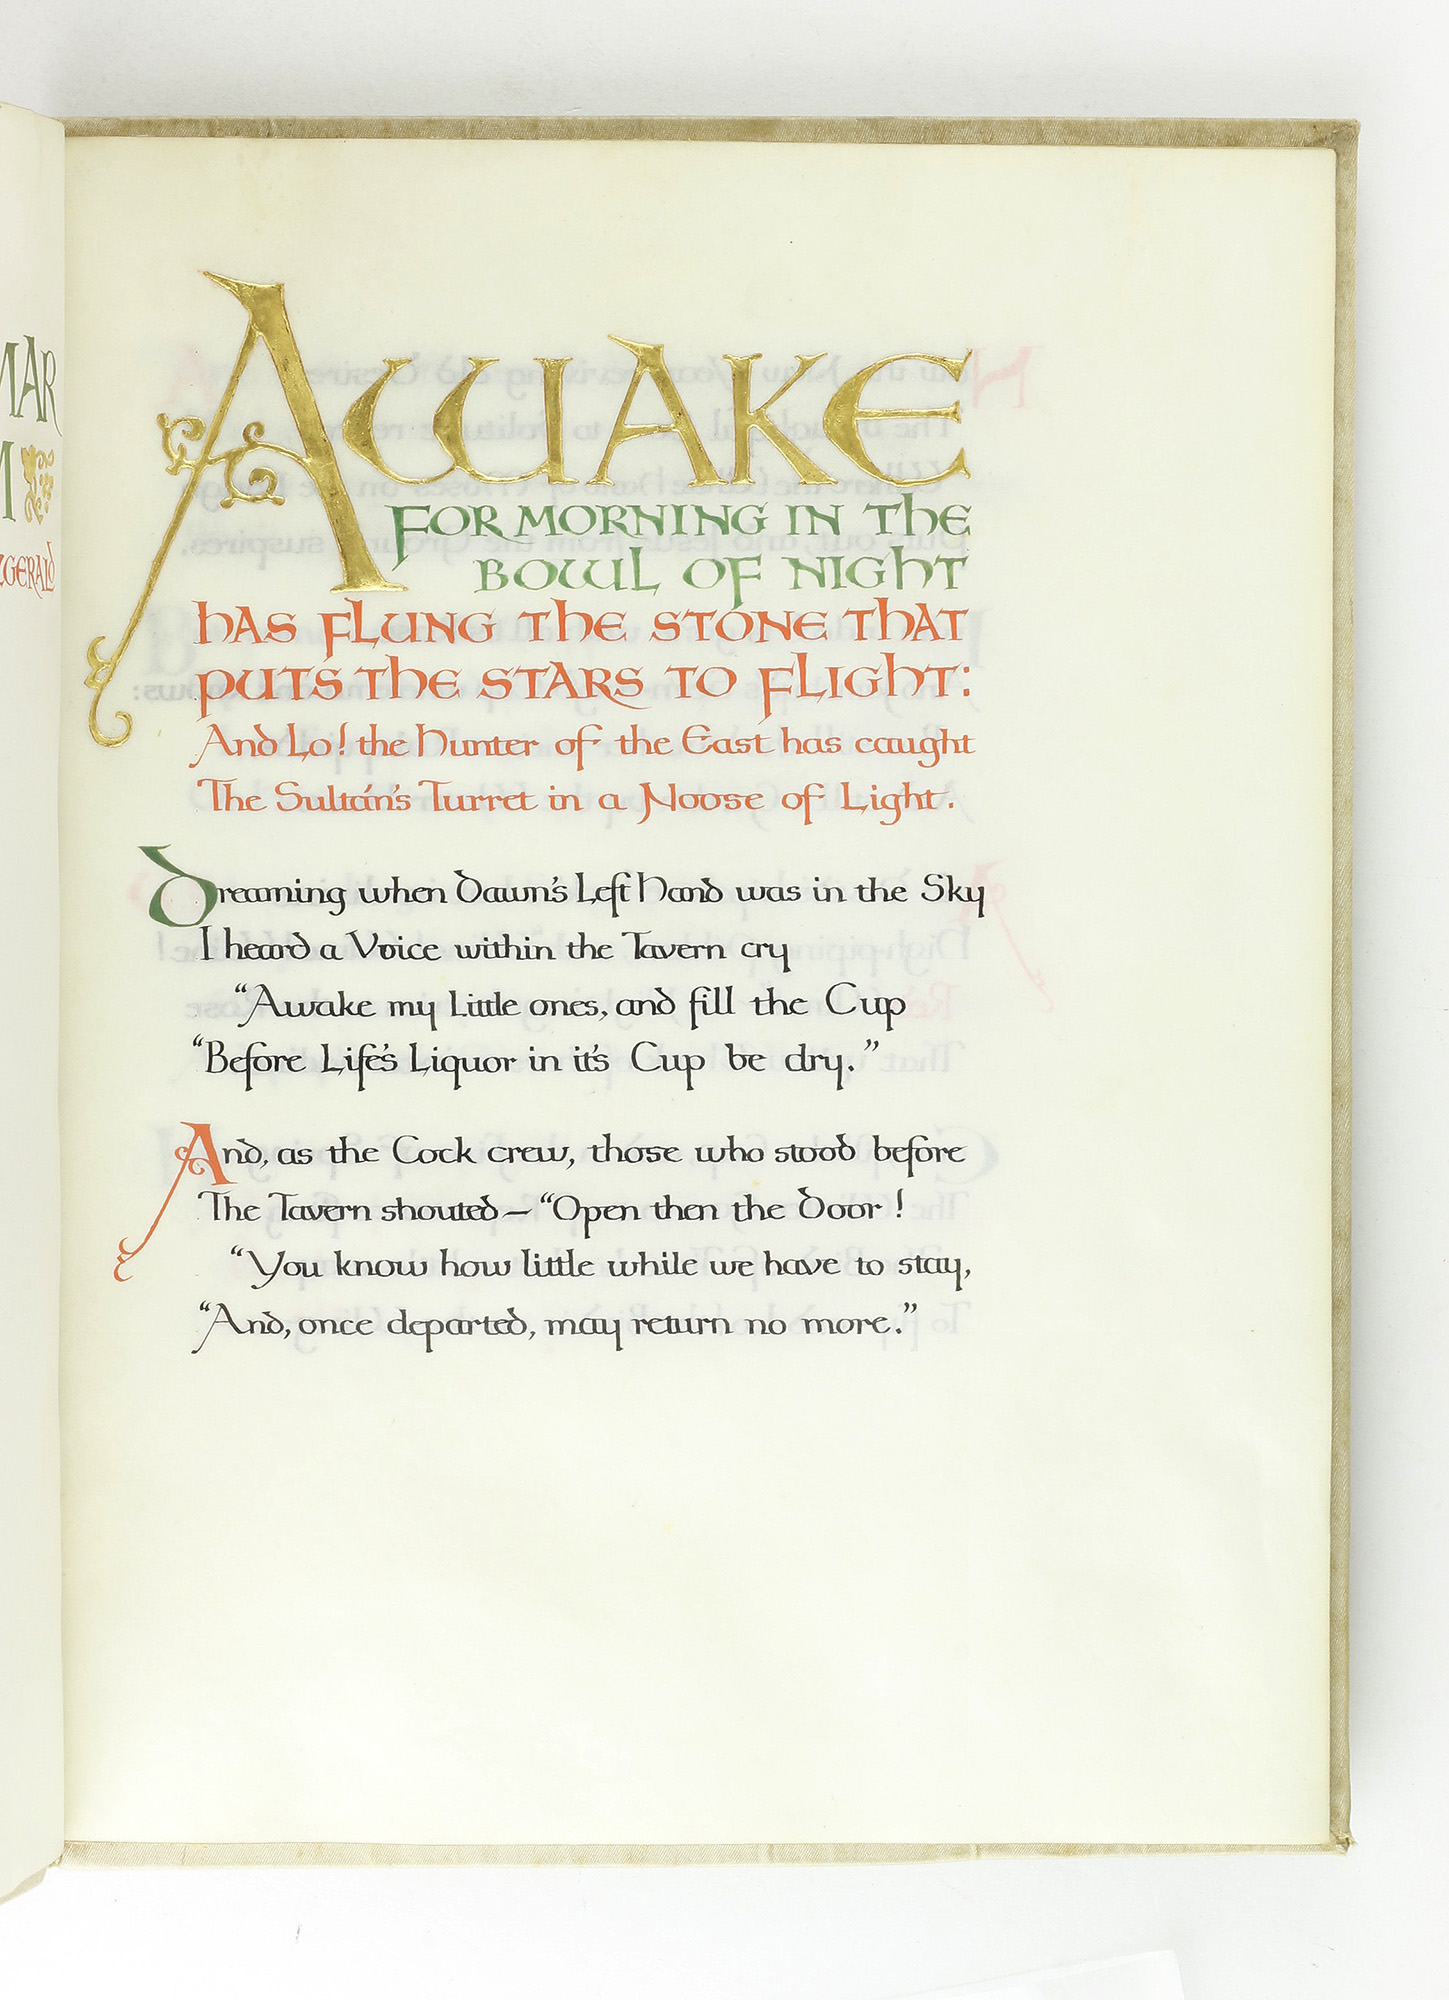 MAR
M
ZGERALD
AWAKE
FOR MORNING IN THE
BOWL OF NIGHT
HAS FLUNG THE STONE THAT
PUTS THE STARS TO FLIGHT:
And Lo! the Hunter of the East has caught
The Sultán's Turret in a Noose of Light.
Dreaming when Dawn's Left Hand was in the Sky
I heard a Voice within the Tavern cry
"Awake my Little ones, and fill the Cup
"Before Life's Liquor in it's Cup be dry."
And, as the Cock crew, those who stood before
The Tavern shouted — "Open then the Door!
"You know how little while we have to stay,
"And, once departed, may return no more."